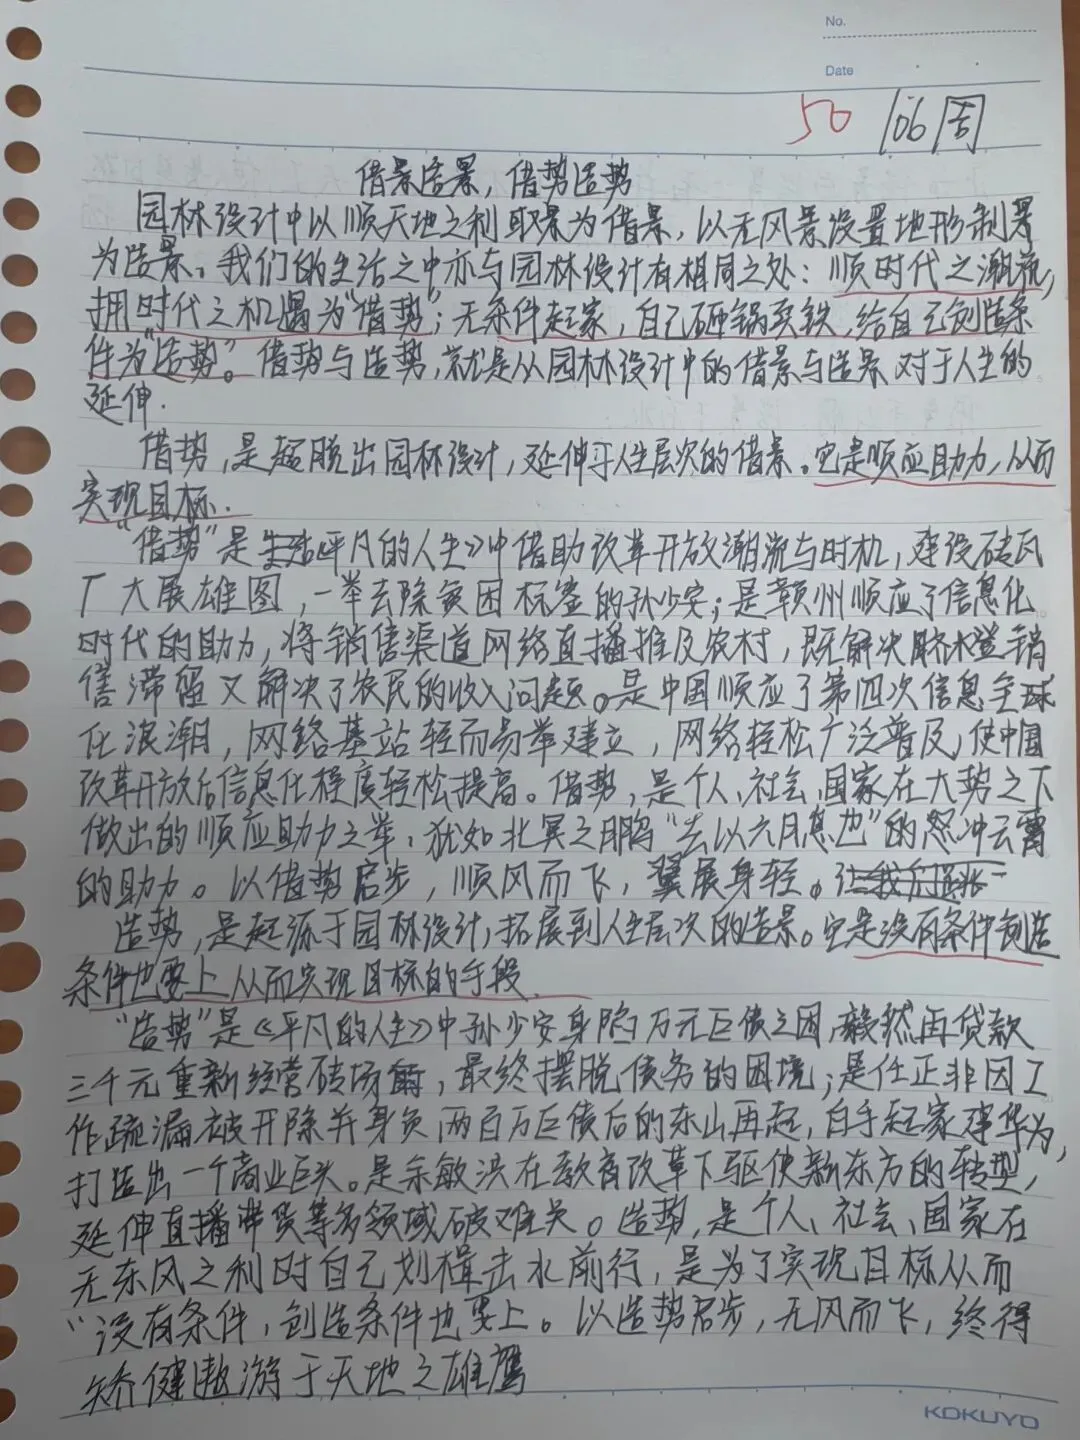 No.
Date
50 106周
借景造景，借势造势
园林设计中以顺天地之利取景为借景，以无风景设置地形制景
为造景。我们的生活之中亦与园林设计有相同之处：顺时代之潮流，
拥时代之机遇为“借势”；无条件起家，自己砸锅卖铁，给自己创造条
件为“造势”。借势与造势，就是从园林设计中的借景与造景对于人生的
延伸.
借势，是超脱出园林设计，延伸于人生层次的借景。它是顺应助力，从而
实现目标.
“借势”是《平凡的人生》中借助改革开放潮流与时机，建设砖瓦
厂大展雄图，一举去除贫困标签的孙少安；是赣州顺应了信息化
时代的助力，将销售渠道网络直播推及农村，既解决脐橙销
售滞留又解决了农民的收入问题。是中国顺应了第四次信息全球
化浪潮，网络基站轻而易举建立，网络轻松广泛普及，使中国
改革开放后信息化程度轻松提高。借势，是个人、社会、国家在大势之下
做出的顺应助力之举，犹如北冥之鹏“去以六月息也”的怒冲云霄
的助力。以借势启步，顺风而飞，翼展身轻。
造势，是起源于园林设计，拓展到人生层次的造景。它是没有条件创造
条件也要上从而实现目标的手段.
“造势”是《平凡的人生》中孙少安身陷万元巨债之困，毅然再贷款
三千元重新经营砖场，最终摆脱债务的困境；是任正非因工
作疏漏被开除并身负两百万巨债后的东山再起，白手起家建华为，
打造出一个商业巨头。是余敏洪在教育改革下驱使新东方的转型，
延伸直播带货等多领域破难关。造势，是个人、社会、国家在
无东风之利时自己划楫击水前行，是为了实现目标从而
“没有条件，创造条件也要上。以造势启步，无风而飞，终得
矫健遨游于天地之雄鹰
KOKUYO